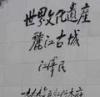 世界文化遗产
丽江古城
江泽民